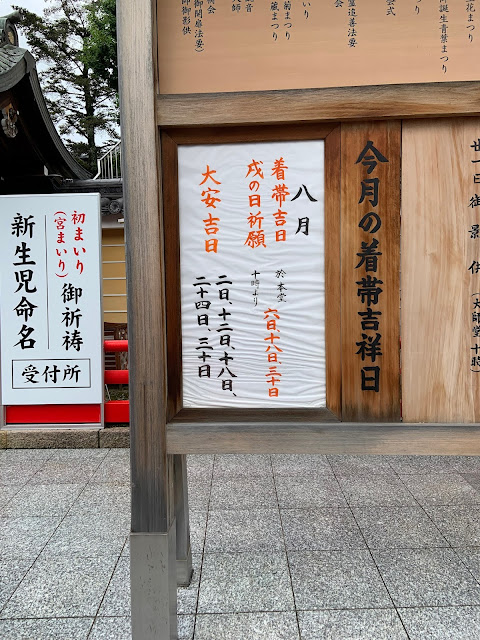 花まつり
誕生青葉まつり
会式
霊追善法要
まいり
菊まつり
蔵まつり
祈会
音
御開扉法要)
師御影供
会
廿一日御影供(大師堂十時)
今月の着帯吉祥日
八月
着帯吉日
戌の日祈願
於本堂
十時より
六日、十八日、三十日
大安吉日
二日、十二日、十八日、
二十四日、三十日
初まいり
(宮まいり)
御祈祷
新生児命名
受付所